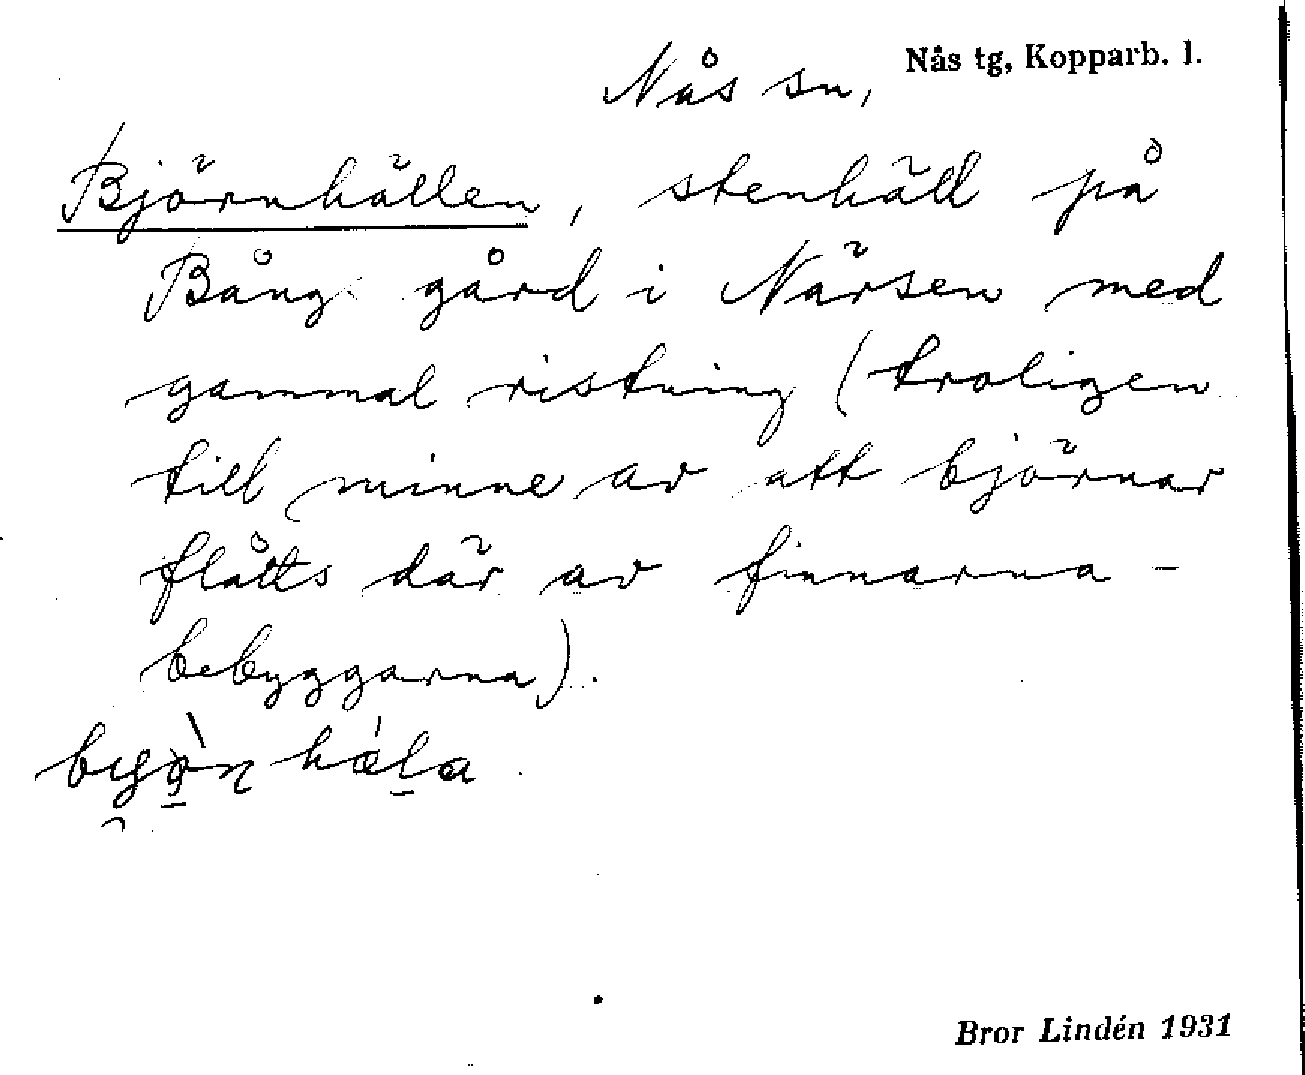 Nås tg, Kopparb. l.
Nås sn,
Björnhällen, stenhäll på
Bång gård i Närsen med
gammal ristning (troligen
till minne av att björnar
flåtts där av finnarna -
bebyggarna).
Bror Lindén 1931